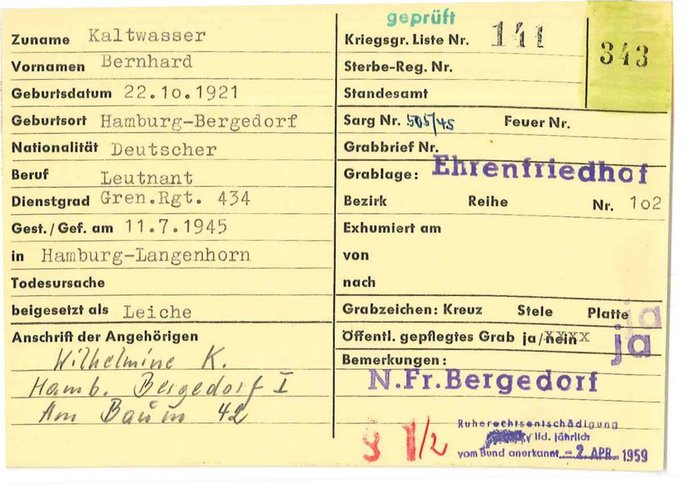 Zuname Kaltwasser
Vornamen Bernhard
Geburtsdatum 22.1o.1921
Geburtsort Hamburg-Bergedorf
Nationalität Deutscher
Beruf Leutnant
Dienstgrad Gren.Rgt. 434
Gest./Gef. am 11.7.1945
in Hamburg-Langenhorn
Todesursache
beigesetzt als Leiche
Anschrift der Angehörigen
Wilhelmine K.
Hamb. Bergedorf I
Am Baum 42
geprüft
Kriegsgr. Liste Nr. 141
343
Sterbe-Reg. Nr.
Standesamt
Sarg Nr. 505/45 Feuer Nr.
Grabbrief Nr.
Grablage: Ehrenfriedhof
Bezirk Reihe Nr. 1o2
Exhumiert am
von
nach
Grabzeichen: Kreuz Stele Platte ja
Öffentl. gepflegtes Grab ja/nein xxxx ja
Bemerkungen:
N.Fr.Bergedorf
1/2
Ruherechtsentschädigung
lfd. jährlich
vom Bund anerkannt - 2. APR. 1959